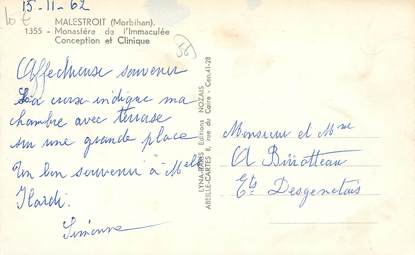 15-11-62
10 €
MALESTROIT (Morbihan).
1355 - Monastère de l'Immaculée
Conception et Clinique
56
Affectueux souvenir
La croix indique ma
chambre avec terrasse
sur une grande place
Un bon souvenir à Melle
Simonne
LYNA-PARIS Editions NOZAIS
ABEILLE-CARTES 8, rue du Caire - Cen.41-28
Monsieur et Mme
A Birotteau
Ets Desgenetais